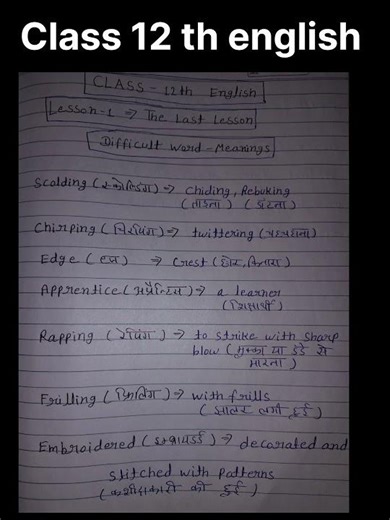 Class 12 th english
CLASS - 12th English
Lesson-1 ⇒ The Last Lesson
Difficult Word-Meanings
Scolding (स्कोल्डिंग) ⇒ Chiding, Rebuking
(ताड़ना) (डांटना)
Chirping (चिरपिंग) ⇒ twittering (चहचहाना)
Edge (एज) ⇒ Crest (छोर, किनारा)
Apprentice (अप्रैन्टिस) ⇒ a learner
(शिक्षार्थी)
Rapping (रेपिंग) ⇒ to strike with sharp
blow (मुक्का या डंडे से
मारना)
Frilling (फ्रिलिंग) ⇒ with frills
(झालर लगी हुई)
Embroidered ⇒ decorated and
stitched with patterns
(कशीदाकारी की हुई)